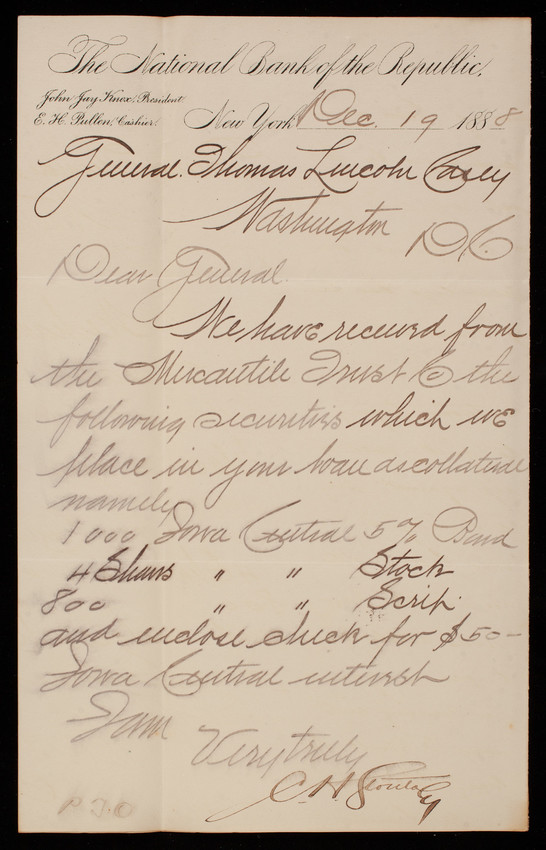 The National Bank of the Republic.
John Jay Knox. President.
E. H. Pullen. Cashier.
New York Dec. 19 1888
General. Thomas Lincoln Casey
Washington
D.C.
Dear General.
We have received from
the Mercantile Trust Co the
following securities which we
place in your loan as collateral
namely
1000 Iowa Central 5% Bond
4 Shares " " Stock
800 " " Scrip.
and enclose check for $50-
Iowa Central interest
I am
Very truly
C. H.
P.T.O